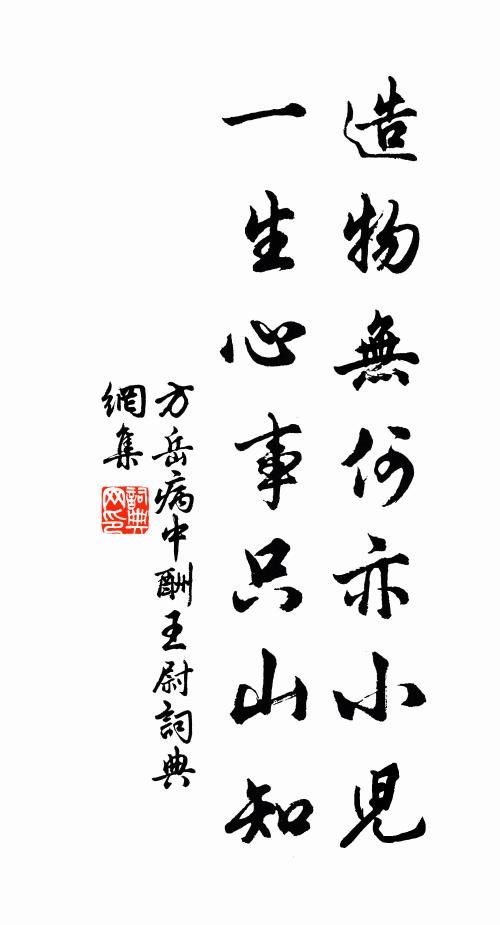 造物無何亦小児
一生心事只山知
方岳病中酬王尉詞典
網集
詞典
网印